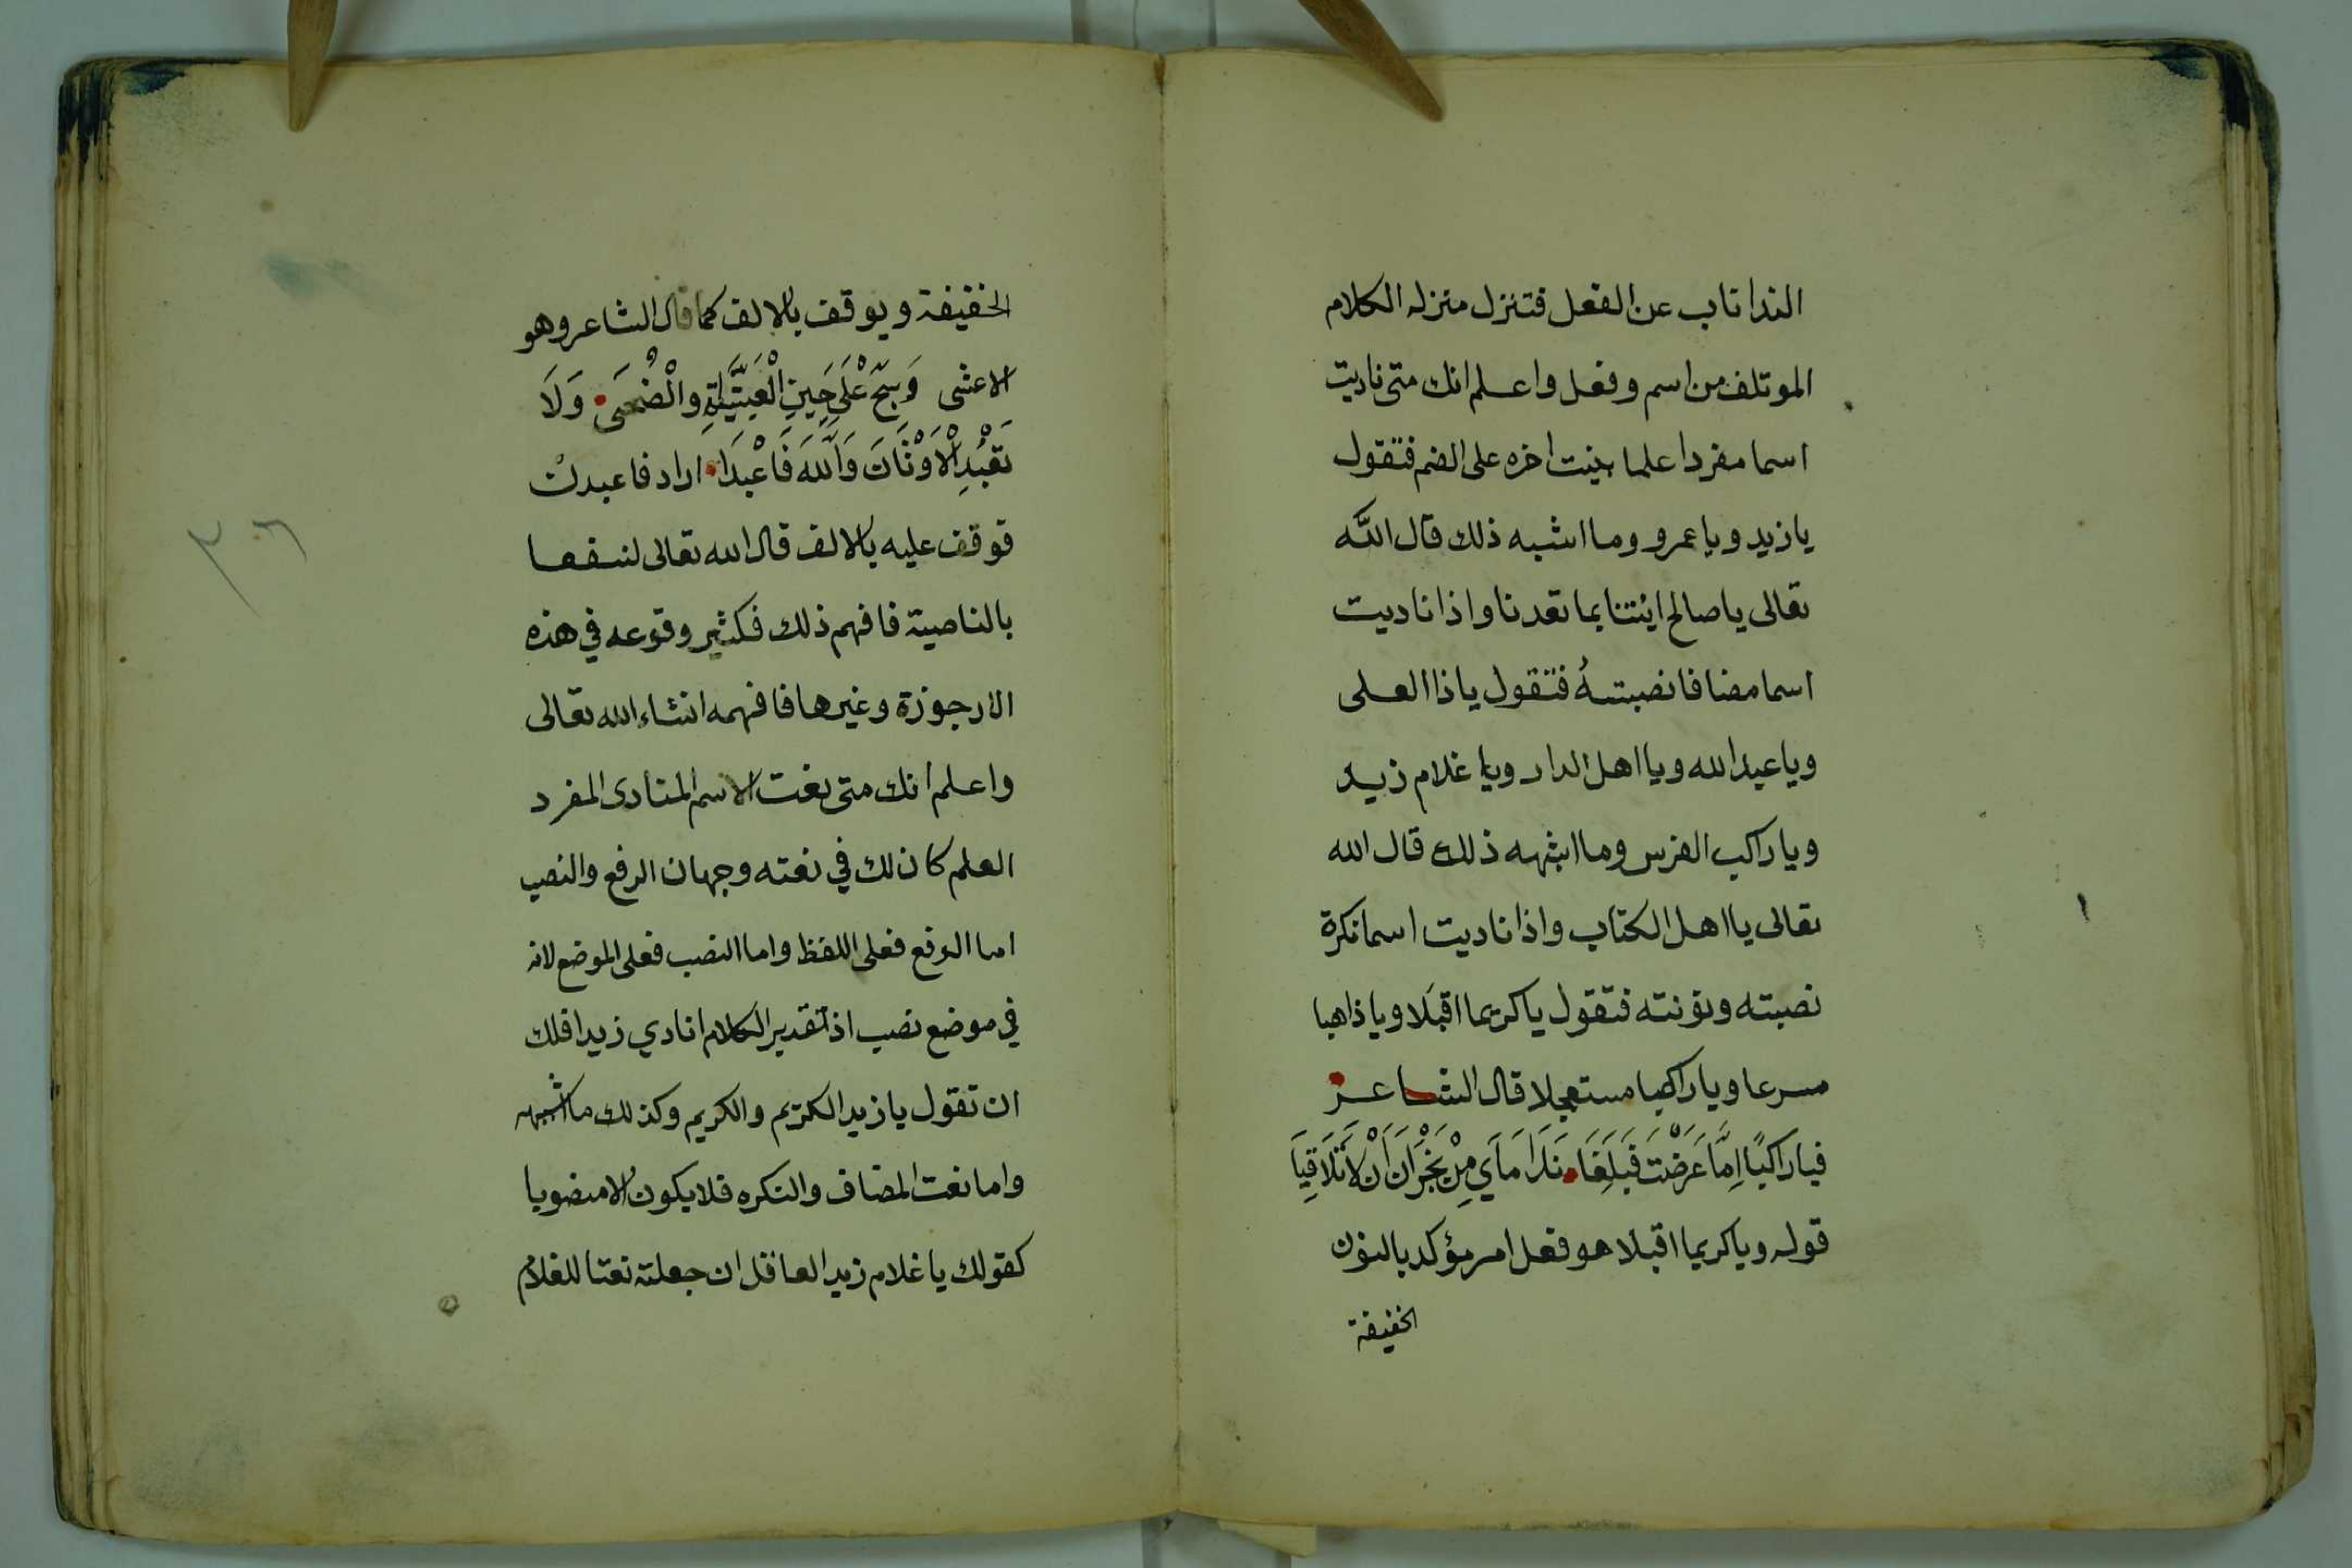 الندا ناب عن الفعل فتنزل منزله الكلام
الموتلف من اسم وفعل واعلم انك متى ناديت
اسما مفردا علما بنيت اخره على الضم فتقول
يا زيد ويا عمرو وما اشبه ذلك قال الله
تعالى يا صالح ائتنا بما تعدنا واذا ناديت
اسما مضافا نصبته فتقول يا ذا العلى
ويا عبد الله ويا اهل الدار ويا غلام زيد
ويا راكب الفرس وما اشبهه ذلك قال الله
تعالى يا اهل الكتاب واذا ناديت اسما نكرة
نصبته ونونته فتقول يا كريما اقبلا ويا ذاهبا
مسرعا ويا راكبا مستعجلا قال الشاعر
فيا راكبًا اِمَّا عَرَضْتَ فَبَلِّغَا نَدَامَاي مِنْ نَجْرَانَ اَنْ لاَ تَلَاقِيَا
قوله ويا كريما اقبلا هو فعل امر مؤكد بالنون
الخفيفة
الخفيفة ويوقف بالالف كما قال الشاعر وهو
الاعشى وَسَبِّحْ عَلَى حِينِ الْعَشِيَّاتِ والْضُحَى وَلَا
تَعْبُدِ الْاَوْثَانَ وَاللهَ فَاعْبُدَا اراد فاعبدن
فوقف عليه بالالف قال الله تعالى لنسفعا
بالناصية فافهم ذلك فكثير وقوعه في هذه
الارجوزة وغيرها فافهمه انشاء الله تعالى
واعلم انك متى نعت الاسم المنادى المفرد
العلم كان لك في نعته وجهان الرفع والنصب
اما الرفع فعلى اللفظ واما النصب فعلى الموضع لانه
في موضع نصب اذ تقدير الكلام انادي زيدا فلك
ان تقول يا زيد الكريم والكريم وكذلك ما اشبهه
واما نعت المضاف والنكره فلا يكون الا منصوبا
كقولك يا غلام زيد العاقل ان جعلته نعتا للغلام